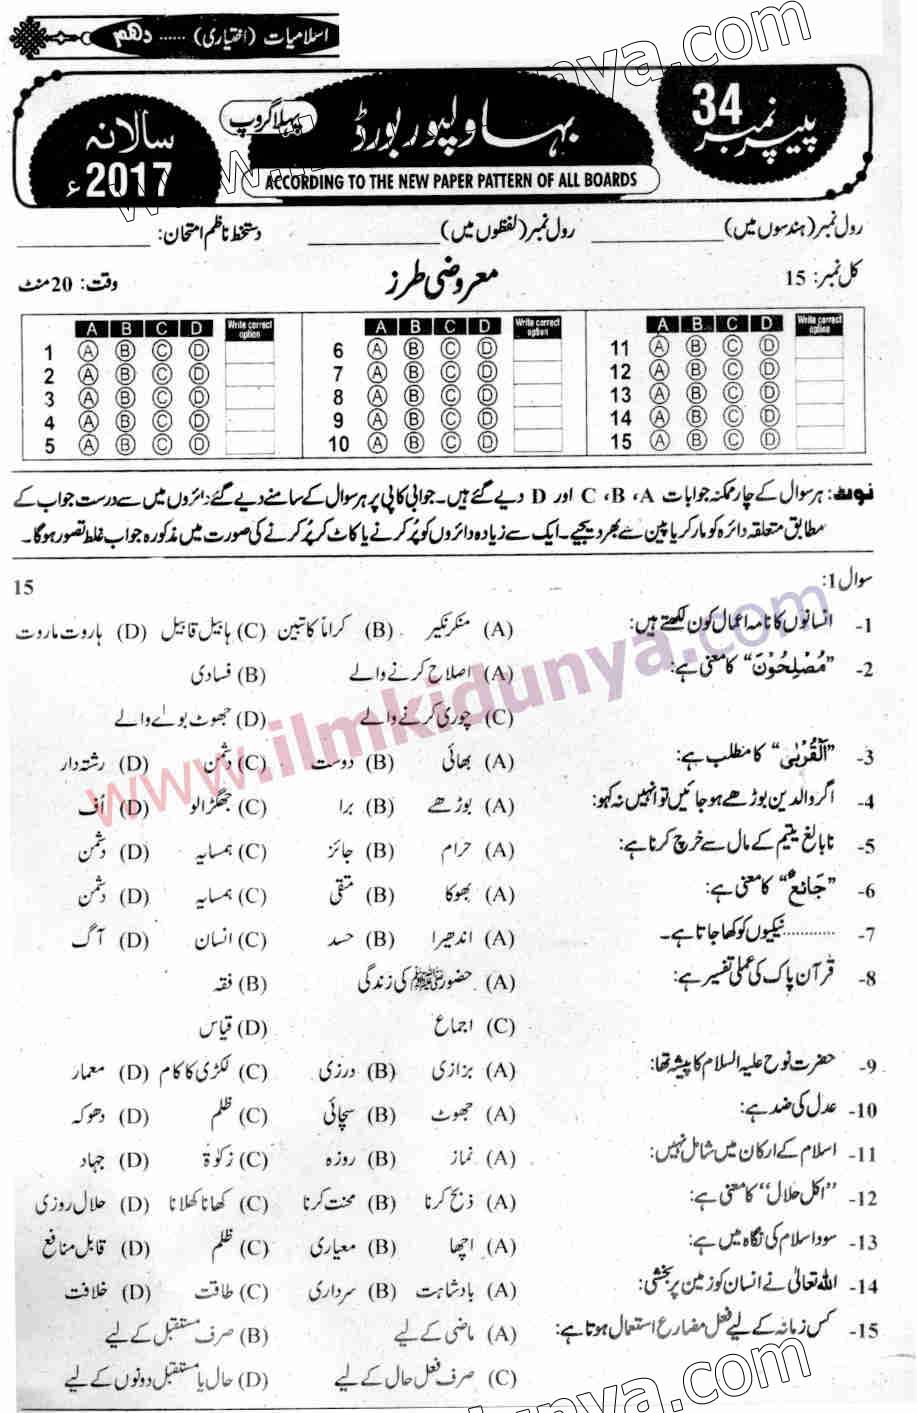 اسلامیات (اختیاری) ...... دھم
پیپر نمبر 34
بہاولپور بورڈ
پہلا گروپ
ACCORDING TO THE NEW PAPER PATTERN OF ALL BOARDS
سالانہ 2017ء
رول نمبر (ہندسوں میں) ____________ رول نمبر (لفظوں میں) ____________ دستخط ناظم امتحان: ____________
کل نمبر: 15 معروضی طرز وقت: 20 منٹ
A B C D Write correct option A B C D Write correct option A B C D Write correct option
1 A B C D 6 A B C D 11 A B C D
2 A B C D 7 A B C D 12 A B C D
3 A B C D 8 A B C D 13 A B C D
4 A B C D 9 A B C D 14 A B C D
5 A B C D 10 A B C D 15 A B C D
نوٹ: ہر سوال کے چار ممکنہ جوابات A، B، C اور D دیے گئے ہیں۔ جوابی کاپی پر ہر سوال کے سامنے دیے گئے دائروں میں سے درست جواب کے
مطابق متعلقہ دائرہ کو مارکر یا پین سے بھر دیجیے۔ ایک سے زیادہ دائروں کو پُر کرنے یا کاٹ کر پُر کرنے کی صورت میں مذکورہ جواب غلط تصور ہوگا۔
سوال 1: 15
1- انسانوں کا نامہ اعمال کون لکھتے ہیں: (A) منکر نکیر (B) کراماً کاتبین (C) ہابیل قابیل (D) ہاروت ماروت
2- ”مُصْلِحُوْنَ“ کا معنی ہے: (A) اصلاح کرنے والے (B) فسادی
(C) چوری کرنے والے (D) جھوٹ بولے والے
3- ”اَلْقُرْبٰی“ کا مطلب ہے: (A) بھائی (B) دوست (C) دشمن (D) رشتہ دار
4- اگر والدین بوڑھے ہو جائیں تو انہیں نہ کہو: (A) بوڑھے (B) برا (C) جھگڑالو (D) اُف
5- نابالغ یتیم کے مال سے خرچ کرنا ہے: (A) حرام (B) جائز (C) ہمسایہ (D) دشمن
6- ”جَائِعٌ“ کا معنی ہے: (A) بھوکا (B) متقی (C) ہمسایہ (D) دشمن
7- ............ نیکیوں کو کھا جاتا ہے۔ (A) اندھیرا (B) حسد (C) انسان (D) آگ
8- قرآن پاک کی عملی تفسیر ہے: (A) حضور ﷺ کی زندگی (B) فقہ
(C) اجماع (D) قیاس
9- حضرت نوح علیہ السلام کا پیشہ تھا: (A) بزازی (B) درزی (C) لکڑی کا کام (D) معمار
10- عدل کی ضد ہے: (A) جھوٹ (B) سچائی (C) ظلم (D) دھوکہ
11- اسلام کے ارکان میں شامل نہیں: (A) نماز (B) روزہ (C) زکوٰۃ (D) جہاد
12- ”اکل حلال“ کا معنی ہے: (A) ذبح کرنا (B) محنت کرنا (C) کھانا کھلانا (D) حلال روزی
13- سود اسلام کی نگاہ میں ہے: (A) اچھا (B) معیاری (C) ظلم (D) قابل منافع
14- اللہ تعالیٰ نے انسان کو زمین پر بخشی: (A) بادشاہت (B) سرداری (C) طاقت (D) خلافت
15- کس زمانہ کے لیے فعل مضارع استعمال ہوتا ہے: (A) ماضی کے لیے (B) صرف مستقبل کے لیے
(C) صرف فعل حال کے لیے (D) حال یا مستقبل دونوں کے لیے
www.ilmkidunya.com